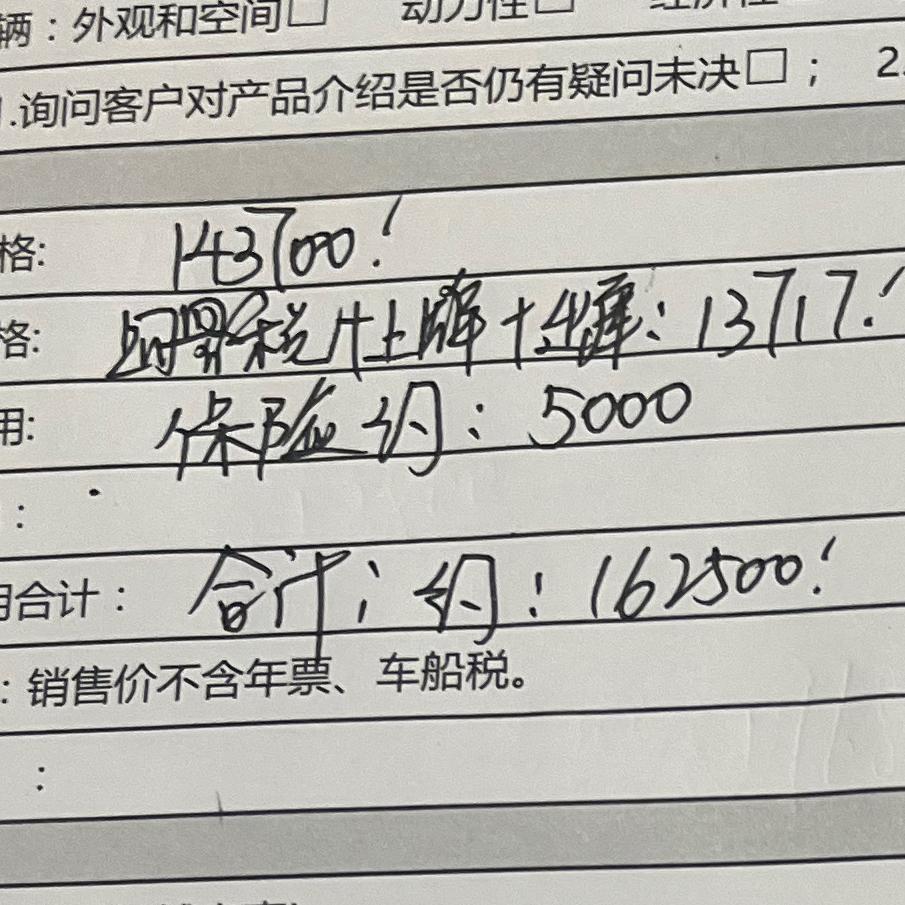 辆：外观和空间□ 动力性□ 经济性
1.询问客户对产品介绍是否仍有疑问未决□； 2.
格: 143700!
格: 购置税+上牌+出库: 13717!
用: 保险约: 5000
:
用合计： 合计: 约: 162500!
: 销售价不含年票、车船税。
: